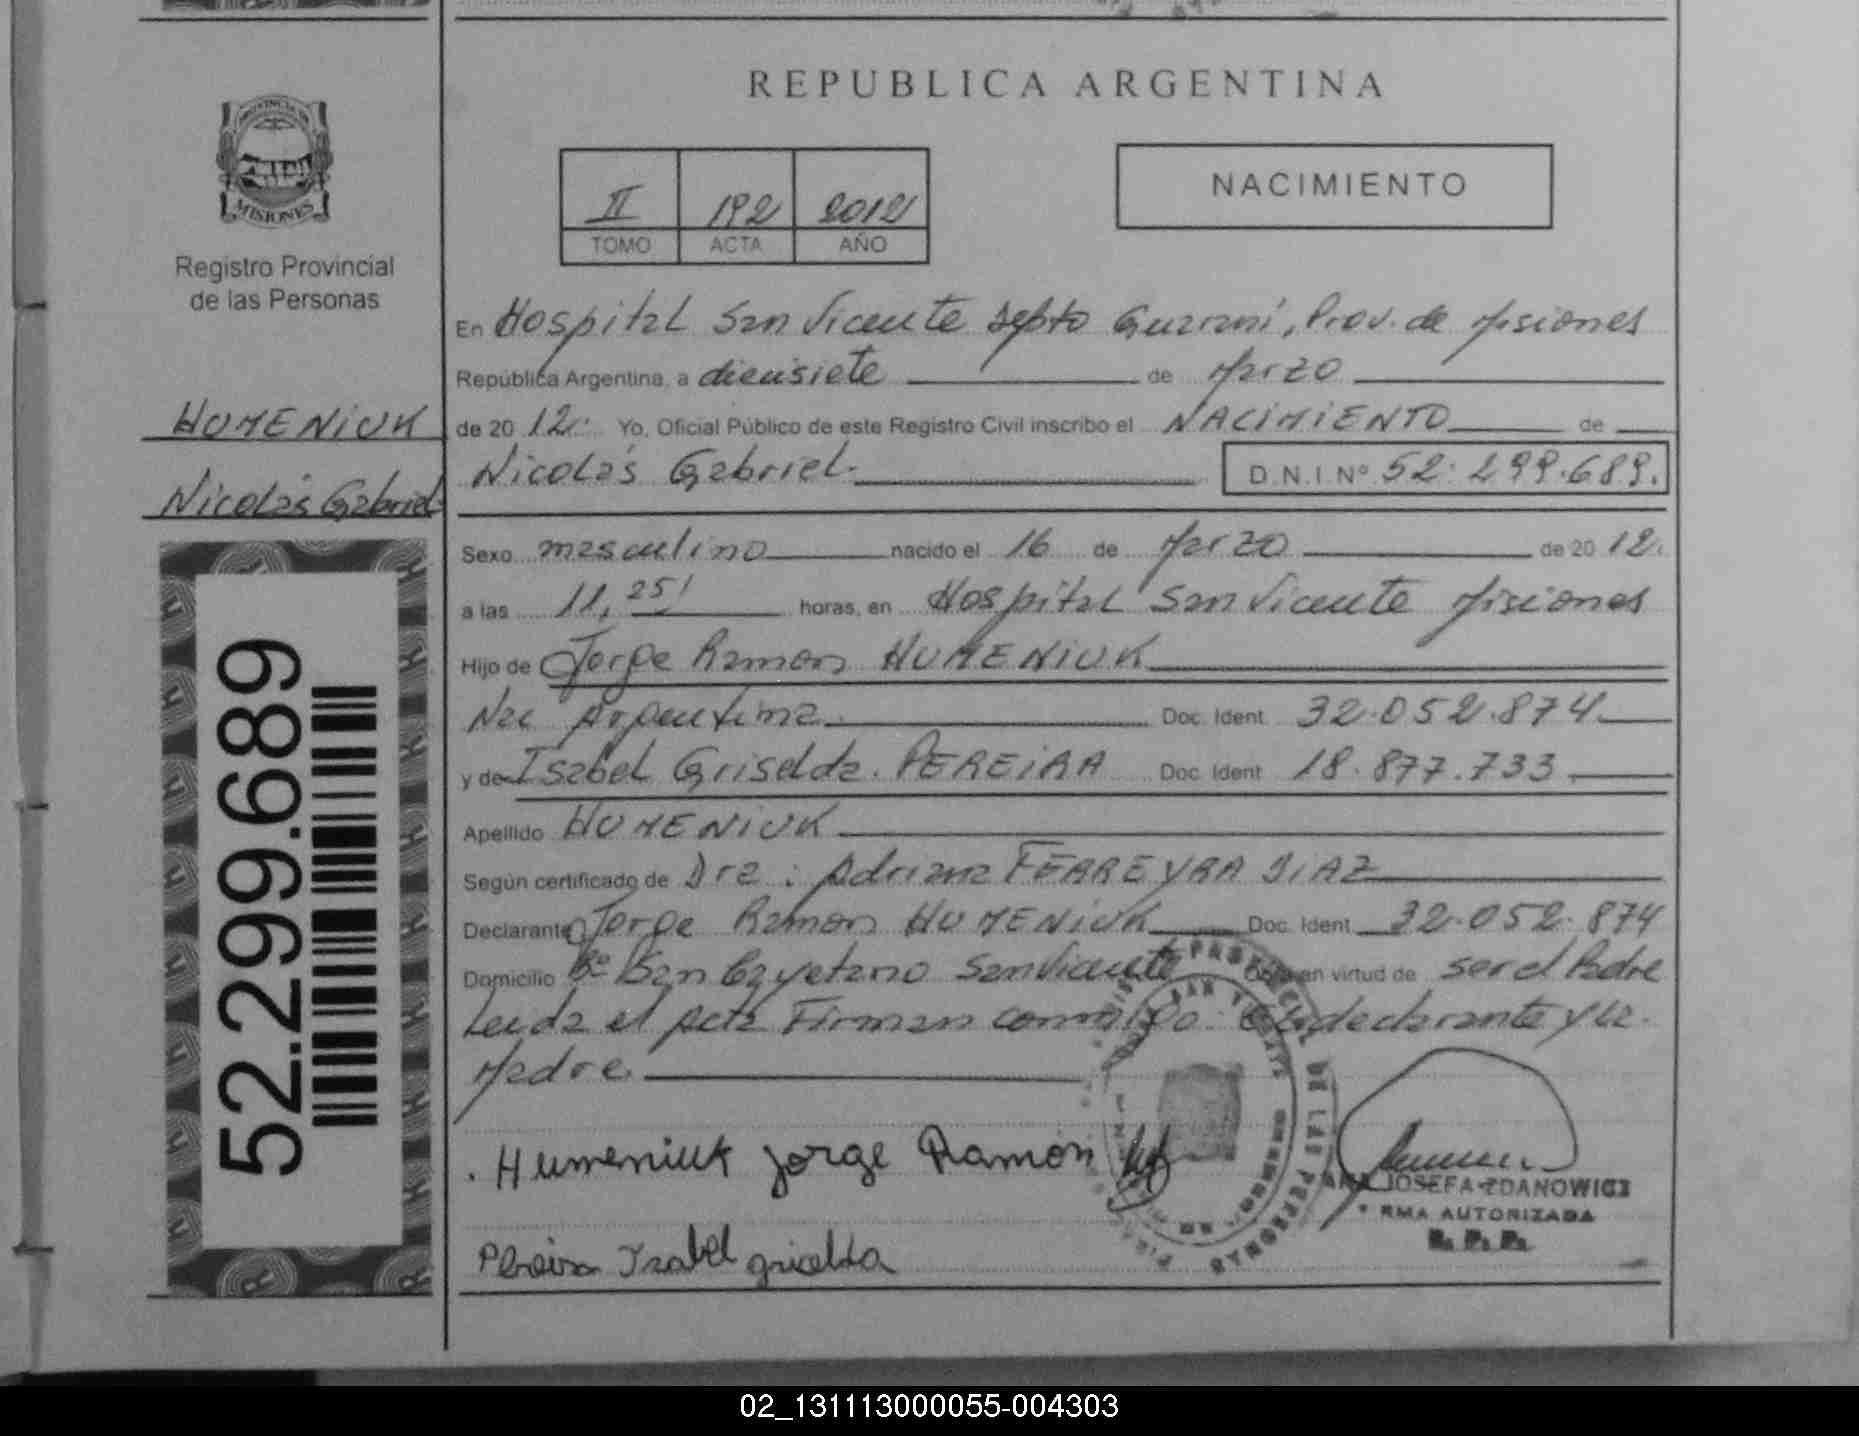 REPUBLICA ARGENTINA
PROVINCIA DE
MISIONES
Registro Provincial
de las Personas
II 192 2012
TOMO ACTA AÑO
NACIMIENTO
HUMENIUK
Nicolás Gabriel
52.299.689
En Hospital San Vicente Depto Guaraní, Prov. de Misiones
República Argentina, a diecisiete de Marzo
de 20 12. Yo, Oficial Público de este Registro Civil inscribo el NACIMIENTO de
Nicolás Gabriel. D.N.I. Nº 52.299.689.
Sexo masculino nacido el 16 de Marzo de 20 12.
a las 11,25 horas, en Hospital San Vicente Misiones
Hijo de Jorge Ramon HUMENIUK
Nac Argentina. Doc. Ident. 32.052.874
y de Isabel Griselda. PEREIRA Doc. Ident. 18.877.733
Apellido HUMENIUK
Según certificado de Dra: Adriana FERREYRA DIAZ
Declarante Jorge Ramon HUMENIUK Doc. Ident. 32.052.874
Domicilio Bº San Cayetano San Vicente en virtud de ser el Padre
Leida el Acta Firman conmigo. declarante y la
Madre.
Humeniuk Jorge Ramón
JOSEFA ZDANOWICZ
FIRMA AUTORIZADA
R. P. P.
Pereira Isabel
DE LAS PERSONAS
02_131113000055-004303